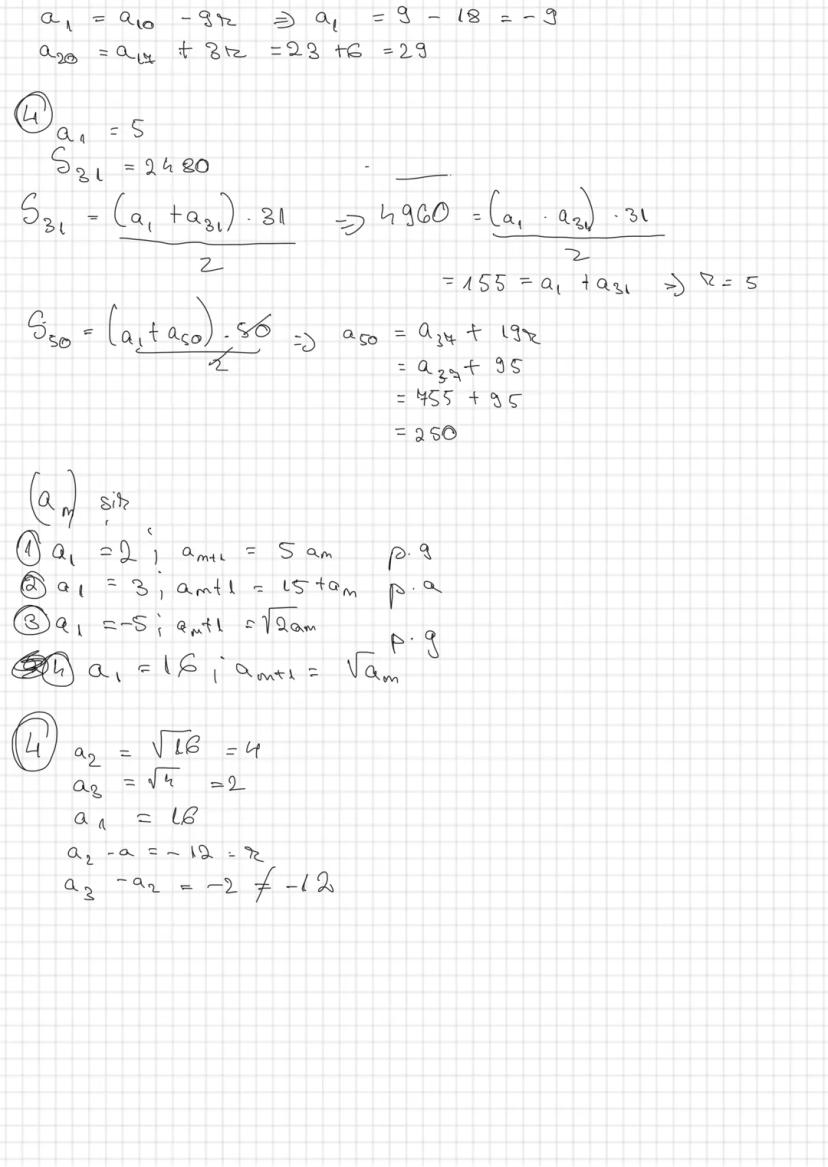 a₁ = a₁₀ - 9r ⇒ a₁ = 9 - 18 = -9
a₂₀ = a₁₇ + 3r = 23 + 6 = 29
④
a₁ = 5
S₃₁ = 2480
S₃₁ = (a₁ + a₃₁) · 31 / 2 ⇒ 4960 = (a₁ · a₃₁) · 31 / 2
= 155 = a₁ + a₃₁ ⇒ r = 5
S₅₀ = (a₁ + a₅₀) · 50 / 2 ⇒ a₅₀ = a₃₇ + 19r
= a₃₇ + 95
= 755 + 95
= 250
(aₙ) șir
① a₁ = 2 ; aₙ₊₁ = 5 aₙ p.g
② a₁ = 3 ; aₙ₊₁ = 15 + aₙ p.a
③ a₁ = -5 ; aₙ₊₁ = √2aₙ p.g
④ a₁ = 16 ; aₙ₊₁ = √aₙ
④ a₂ = √16 = 4
a₃ = √4 = 2
a₁ = 16
a₂ - a = -12 = r
a₃ - a₂ = -2 ≠ -12